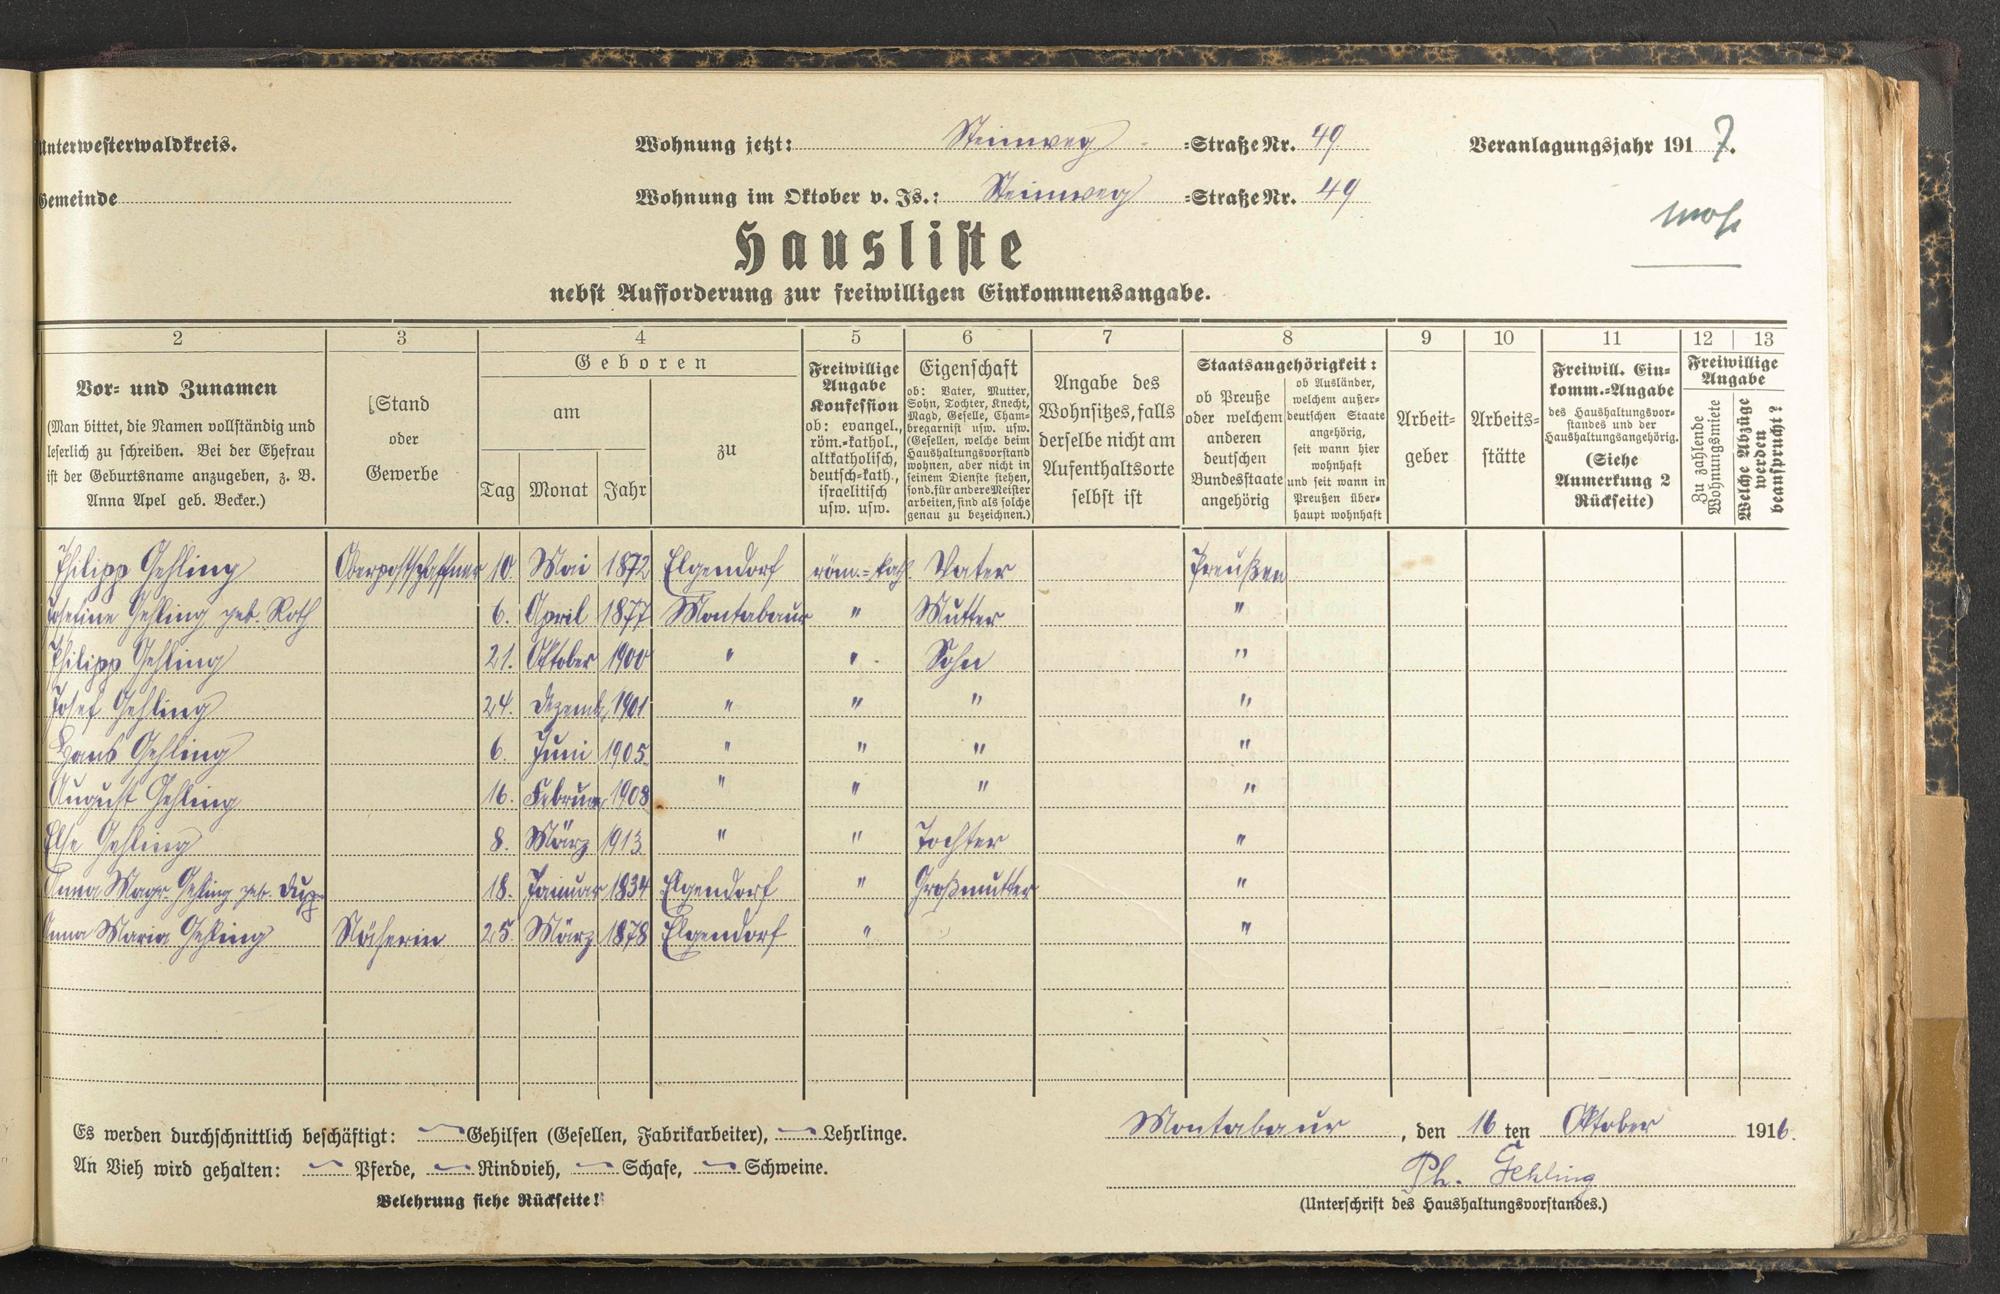 Unterwesterwaldkreis.
Wohnung jetzt: Steinweg =Straße Nr. 49
Veranlagungsjahr 1917.
Gemeinde
Wohnung im Oktober v. Js.: Steinweg =Straße Nr. 49
Hausliste
nebst Aufforderung zur freiwilligen Einkommensangabe.
2 3 4 5 6 7 8 9 10 11 12 13
Vor- und Zunamen
(Man bittet, die Namen vollständig und
leserlich zu schreiben. Bei der Ehefrau
ist der Geburtsname anzugeben, z. B.
Anna Apel geb. Becker.)
Stand
oder
Gewerbe
Geboren
am
Tag Monat Jahr
zu
Freiwillige
Angabe
Konfession
ob: evangel.,
röm.-kathol.,
altkatholisch,
deutsch-kath.,
israelitisch
usw. usw.
Eigenschaft
ob: Vater, Mutter,
Sohn, Tochter, Knecht,
Magd, Geselle, Cham-
bregarnist usw. usw.
(Gesellen, welche beim
Haushaltungsvorstand
wohnen, aber nicht in
seinem Dienste stehen,
sond. für andere Meister
arbeiten, sind als solche
genau zu bezeichnen.)
Angabe des
Wohnsitzes, falls
derselbe nicht am
Aufenthaltsorte
selbst ist
Staatsangehörigkeit:
ob Preuße
oder welchem
anderen
deutschen
Bundesstaate
angehörig
ob Ausländer,
welchem außer-
deutschen Staate
angehörig,
seit wann hier
wohnhaft
und seit wann in
Preußen über-
haupt wohnhaft
Arbeit-
geber
Arbeits-
stätte
Freiwill. Ein-
komm.-Angabe
des Haushaltungsvor-
standes und der
Haushaltungsangehörig.
(Siehe
Anmerkung 2
Rückseite)
Freiwillige
Angabe
Zu zahlende
Wohnungsmiete
Welche Abzüge
werden
beansprucht?
Philipp Gehling Oberpostschaffner 10. Mai 1872 Elgendorf röm.=kath. Vater Preußen
Josefine Gehling geb. Roth 6. April 1877 Montabaur " Mutter "
Philipp Gehling 21. Oktober 1900 " " Sohn "
Josef Gehling 24. Dezemb. 1901 " " " "
Hans Gehling 6. Juni 1905 " " " "
August Gehling 16. Februar 1908 " " " "
Else Gehling 8. März 1913 " " Tochter "
Anna Magr. Gehling geb. Dupp 18. Januar 1834 Elgendorf " Großmutter "
Anna Maria Gehling Näherin 25. März 1878 Elgendorf " "
Es werden durchschnittlich beschäftigt: Gehilfen (Gesellen, Fabrikarbeiter), Lehrlinge.
Montabaur, den 16 ten Oktober 1916.
An Vieh wird gehalten: Pferde, Rindvieh, Schafe, Schweine.
Ph. Gehling
Belehrung siehe Rückseite!
(Unterschrift des Haushaltungsvorstandes.)